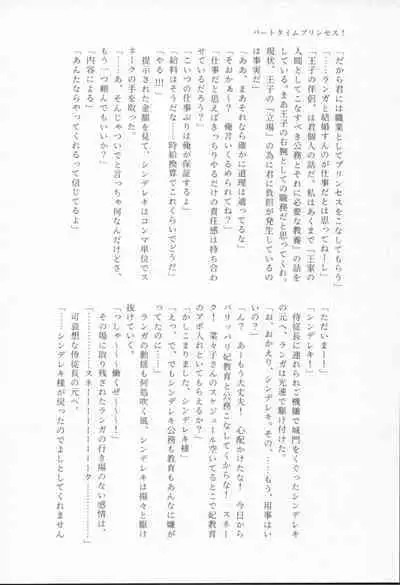 パートタイムプリンセス!
「だから君には職業としてプリンセスをこなしてもらう」
「……ランガと結婚すんのが仕事だとは思ってねーし」
「王子の伴侶、は君個人の話だ。私はあくまで『王家の
人間としてこなすべき公務とそれに必要な教養』の話を
している。まあ王子の右腕としての職務だと思ってくれ。
現状、王子の『立場』の為に君に負担が発生しているの
は事実だ」
「ああ、まあそれなら確かに道理は適ってるな」
「そおかぁ〜? 俺言いくるめられてね?」
「仕事だと思えばきっちりやるだけの責任感は持ち合わ
せているだろう?」
「こいつの仕事ぶりは俺が保証するよ」
「給料はそうだな……時給換算でこれくらいでどうだ」
「やる!!!」
提示された金額を見て、シンデレキはコンマ単位でス
ネークの手を取った。
「……あ、そんじゃついでと言っちゃ何なんだけどさ、
もう一つ頼んでもいいか?」
「内容による」
「あんたならやってくれるって信じてるよ」
「ただいまー!」
「シンデレキ!」
侍従長に連れられご機嫌で城門をくぐったシンデレキ
の元へ、ランガは光速で駆け付けた。
「お、おかえり、シンデレキ。その、……もう、用事はい
いの?」
「ん? あーもう大丈夫! 心配かけたな! 今日から
バリッバリ妃教育と公務こなしてくからな! スネー
ク! 菜々子さんのスケジュール空いてるとこで妃教育
のアポ入れといてもらえるか?」
「かしこまりました、シンデレキ様」
「えっ、で、でもシンデレキ公務も教育もあんなに嫌が
ってたのに……」
ランガの動揺も何処吹く風、シンデレキは揚々と駆け
抜けていく。
「っしゃ〜〜〜働くぜ〜〜〜!」
その場に取り残されたランガの行き場のない感情は、
「…………………スネーーーーーーーーーク……………」
可哀想な侍従長の元へ。
「……シンデレキ様が戻ったのでよしとしてくれません